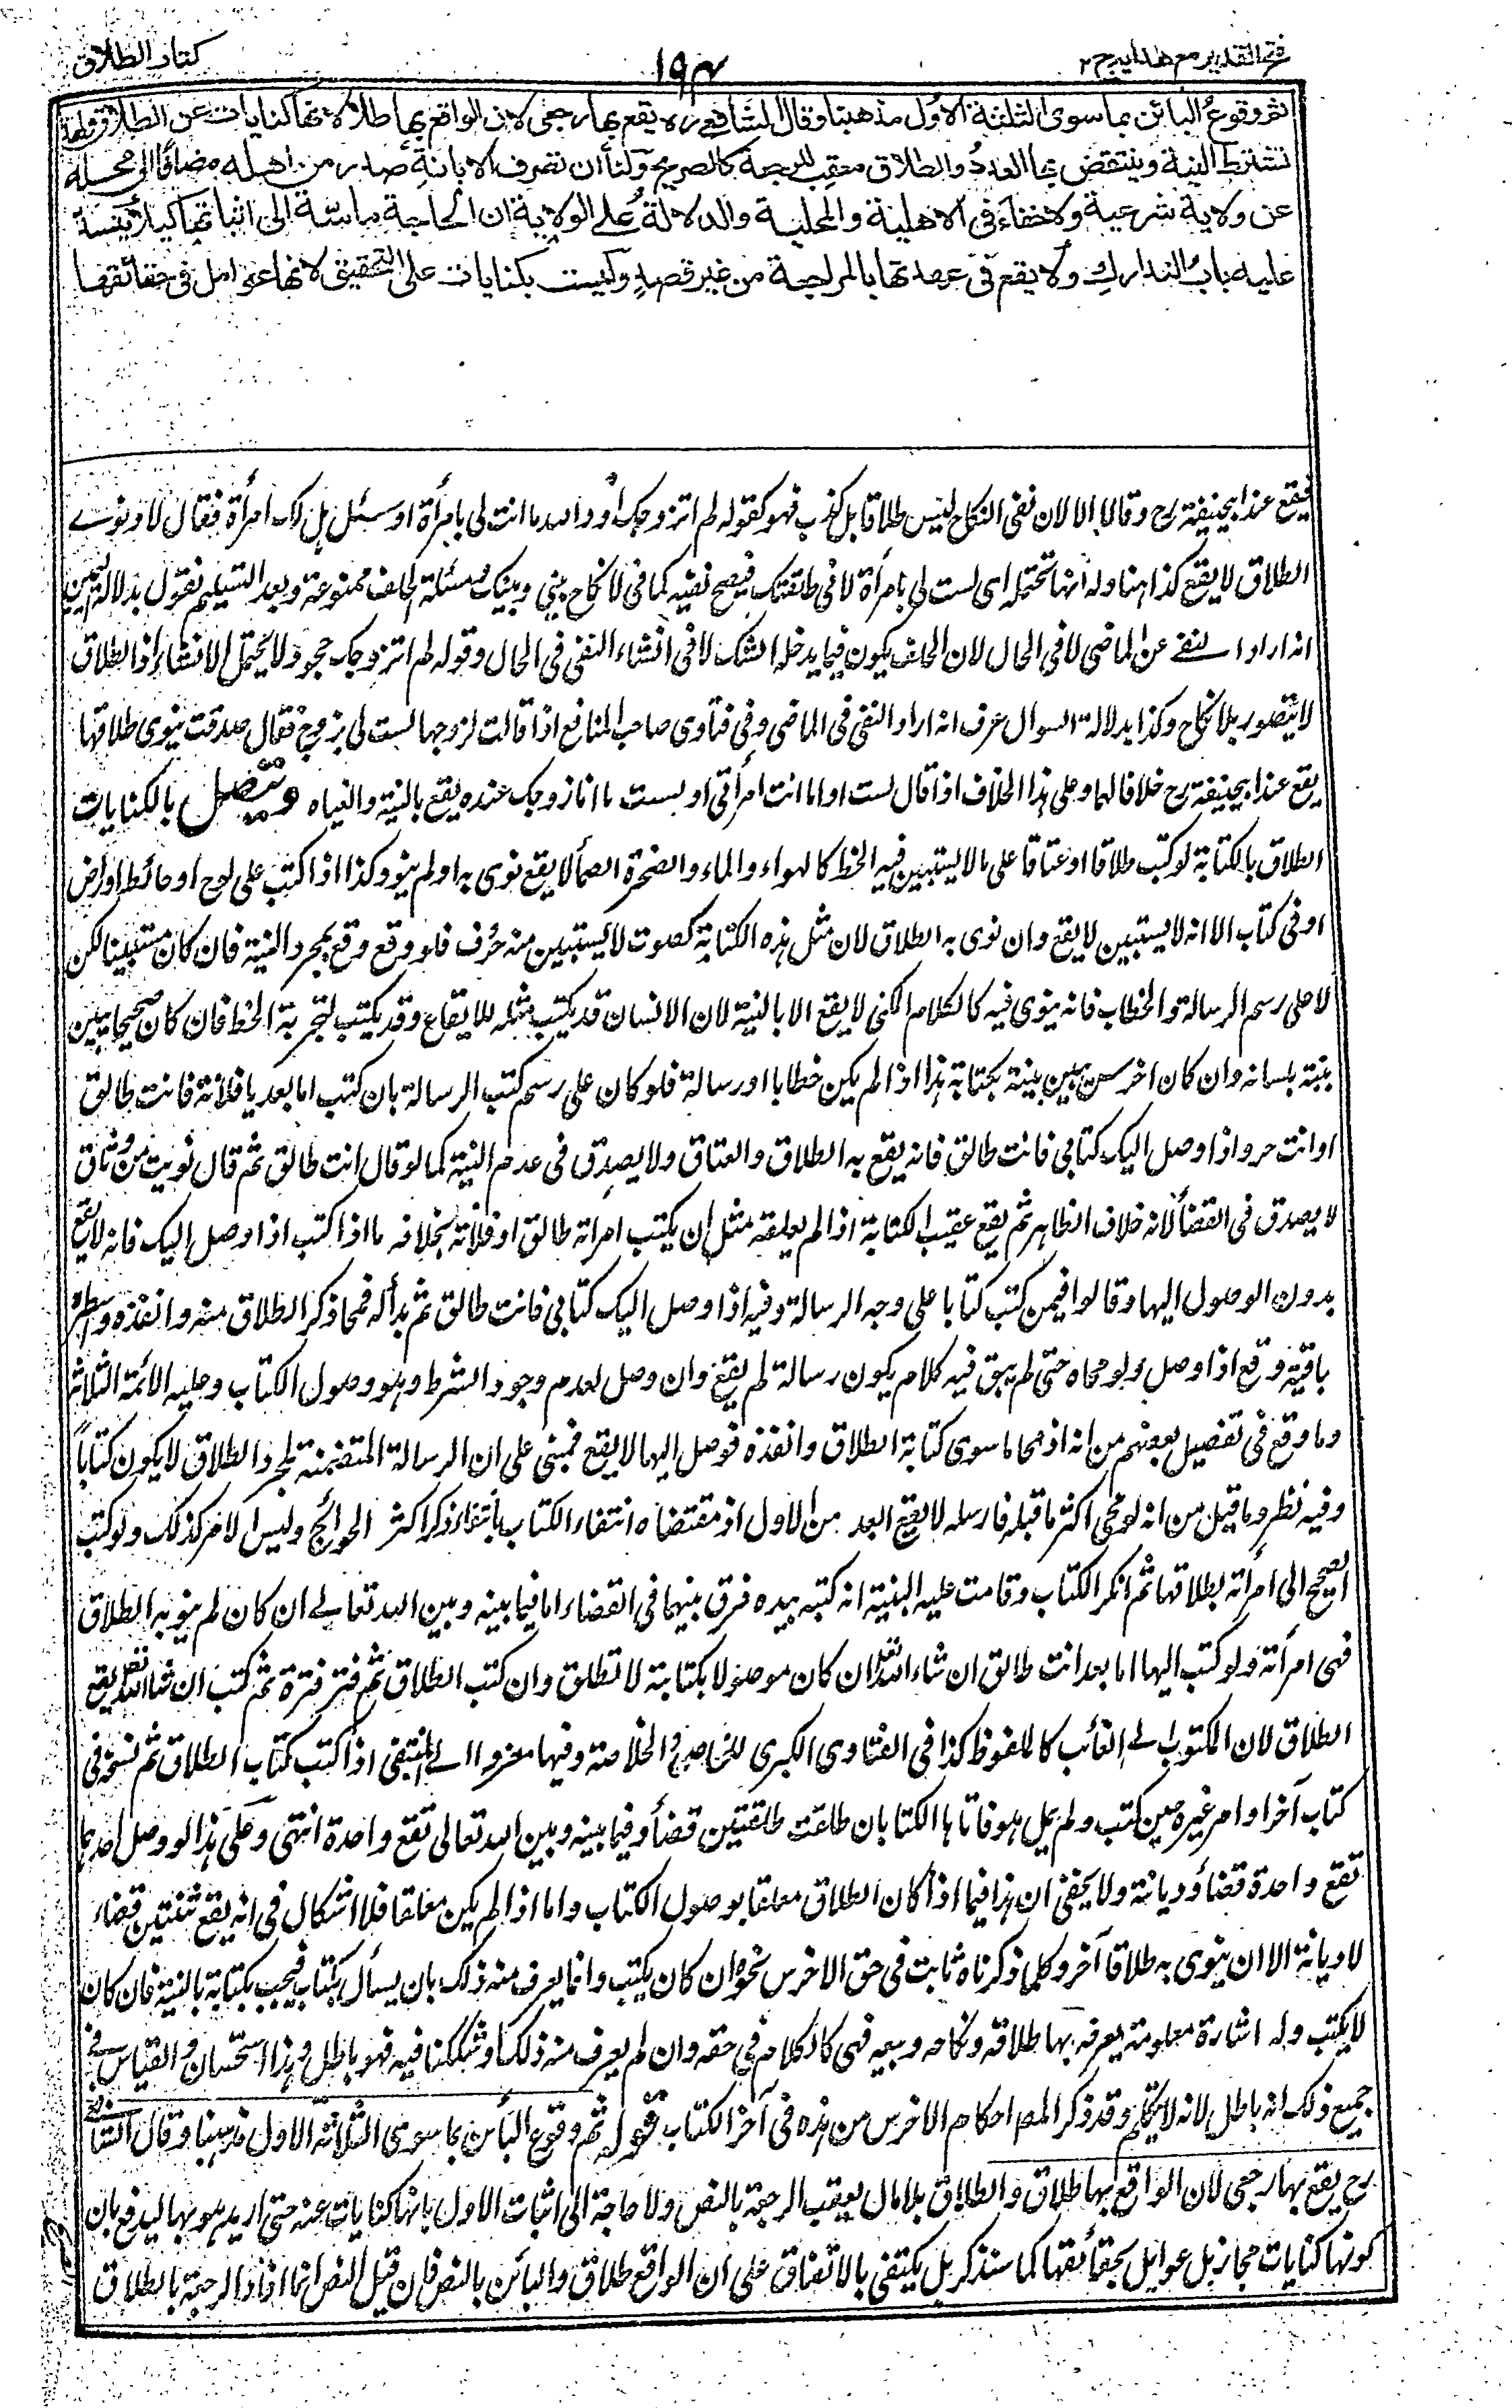 فتح القدير مع هدايه ج ٢
١٩٤
كتاب الطلاق
ثم وقوع البائن بما سوى الثلثة الاول مذهبنا وقال الشافعي ره يقع بها رجعي لان الواقع بها طلاق لانها كنايات عن الطلاق ولهذا
تشترط النية وينتقض بها العدد والطلاق معقب للرجعة كالصريح ولنا ان تصرف الابانة صدر من اهله مضافا الى محله
عن ولاية شرعية ولا خفاء في الاهلية والمحلية والدلالة على الولاية ان الحاجة ماسة الى اثباتها كيلا ينسد
عليه باب التدارك ولا يقع في عهدتها بالمراجعة من غير قصد وليست بكنايات على التحقيق لانها عوامل في حقائقها
فيقع عند ابيحنيفة رح وقالا لا لان نفى النكاح ليس طلاقا بل كذب فهو كقوله لم اتزوجك او والله ما انت لى بامرأة او سئل هل لك امرأة فقال لا ونوى
الطلاق لا يقع كذا هنا وله انها تحتمله اى لست لى بامرأة لانى طلقتك فيصح نفيه كما فى لا نكاح بينى وبينك ومسئلة الحلف ممنوعة وبعد التسليم نقول بدلالة اليمين
انه اراد النفى عن الماضى لا فى الحال لان الحلف يكون فيما يدخله الشك لا فى انشاء النفى فى الحال وقوله لم اتزوجك جحود لا يحتمل الانشاء اذ الطلاق
لا يتصور بلا نكاح وكذا بدلالة السوال عرف انه اراد النفى فى الماضى وفى فتاوى صاحب المنافع اذا قالت لزوجها لست لى بزوج فقال صدقت ينوى طلاقها
يقع عند ابيحنيفة رح خلافا لهما وعلى هذا الخلاف اذا قال لست او ما انت امرأتى او لست ما انا زوجك عنده يقع بالنية والغياه ويتصل بالكنايات
الطلاق بالكتابة لو كتب طلاقا او عتاقا على ما لا يستبين فيه الخط كالهواء والماء والصخرة الصماء لا يقع نوى به او لم ينو وكذا اذا كتب على لوح او حائط او ارض
او فى كتاب الا انه لا يستبين لا يقع وان نوى به الطلاق لان مثل هذه الكتابة كصوت لا يستبين منه حرف فلو وقع وقع بمجرد النية فان كان مستبينا لكن
لا على رسم الرسالة والخطاب فانه ينوى فيه كالكلام المكنى لا يقع الا بالنية لان الانسان قد يكتب مثله للايقاع وقد يكتب لتجربة الخط فان كان صحيحا يبين
نيته بلسانه وان كان اخرس يبين نيته بكتابة هذا اذا لم يكن خطابا او رسالة فلو كان على رسم كتب الرسالة بان كتب اما بعد يا فلانة فانت طالق
او انت حر واذا وصل اليك كتابى فانت طالق فانه يقع به الطلاق والعتاق ولا يصدق فى عدم النية كما لو قال انت طالق ثم قال نويت من وثاق
لا يصدق فى القضاء لانه خلاف الظاهر ثم يقع عقيب الكتابة اذا لم يعلقه مثل ان يكتب امرأته طالق او فلانة بخلافه ما اذا كتب اذا وصل اليك فانه لا يقع
بدون الوصول اليها وقالوا فيمن كتب كتابا على وجه الرسالة وفيه اذا وصل اليك كتابى فانت طالق ثم بدأ له فمحا ذكر الطلاق منه وانفذه وسطره
باقية وقع اذا وصل ولو محاه حتى لم يبق فيه كلام يكون رسالة لم يقع وان وصل لعدم وجود الشرط وهو وصول الكتاب وعليه الائمة الثلاثة
وما وقع فى تفصيل بعضهم من انه اذا محا ما سوى كتابة الطلاق وانفذه فوصل اليها لا يقع فمبنى على ان الرسالة المتضمنة لمجرد الطلاق لا يكون كتابا
وفيه نظر وما قيل من انه لو محى اكثر ما قبله فارسله لا يقع ابعد من الاول اذ مقتضاه انتفاء الكتاب بانتفاء ذكر اكثر الحوائج وليس الامر كذلك ولو كتب
الصحيح الى امرأته بطلاقها ثم انكر الكتاب وقامت عليه البينة انه كتبه بيده فرق بينهما فى القضاء اما فيما بينه وبين الله تعالى ان كان لم ينو به الطلاق
فهى امرأته ولو كتب اليها اما بعد انت طالق ان شاء الله تعالى ان كان موصولا بكتابة لا تطلق وان كتب الطلاق ثم فتر فترة ثم كتب ان شاء الله تعالى يقع
الطلاق لان المكتوب الى الغائب كالملفوظ كذا فى الفتاوى الكبرى للخاصى والخلاصة وفيها معزوا الى المنتقى اذا كتب كتاب الطلاق ثم نسخه فى
كتاب آخر او امر غيره حين كتب ولم يمل هو فاتاها الكتابان طلقت طلقتين قضاء وفيما بينه وبين الله تعالى تقع واحدة انتهى وعلى هذا لو وصل احدهما
تقع واحدة قضاء وديانة ولا يخفى ان هذا فيما اذا كان الطلاق معلقا بوصول الكتاب واما اذا لم يكن معلقا فلا اشكال فى انه يقع ثنتين قضاء
لا ديانة الا ان ينوى به طلاقا آخر وكلما ذكرناه ثابت فى حق الاخرس نحوه ان كان يكتب وانما يعرف منه ذلك بان يسأل بكتاب فيجيب بكتابة بالنية فان كان
لا يكتب وله اشارة معلومة يعرف بها طلاقه ونكاحه وبيعه فهى كالكلام فى حقه وان لم يعرف منه ذلك او شككنا فيه فهو باطل وهذا استحسان والقياس فى
جميع ذلك انه باطل لانه لا يتكلم وقد ذكر المص احكام الاخرس من هذه فى آخر الكتاب قوله ثم وقوع البائن بما سوى الثلاثة الاول مذهبنا وقال الشافعى
رح يقع بها رجعى لان الواقع بها طلاق والطلاق بلا مال يعقب الرجعة بالنص ولا حاجة الى اثبات الاول بانها كنايات عنه حتى اريد هو بها ليدفع بان
كونها كنايات مجاز بل عوامل بحقائقها كما سنذكر بل يكتفى بالاتفاق على ان الواقع طلاق والبائن بالنص فان قيل النص انما افاد الرجعة بالطلاق